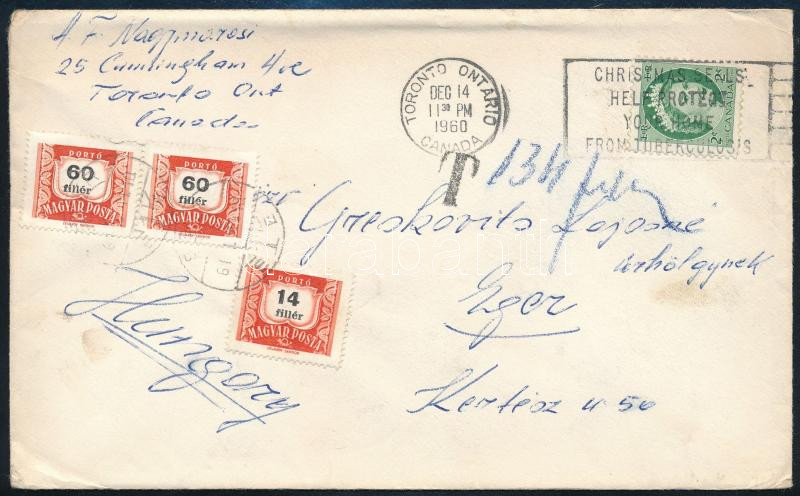 A F. Nagymarosi
25 Cunningham Ave
Toronto Ont
Canada
TORONTO ONTARIO
DEC 14
11 30 PM
1960
CANADA
CHRISTMAS SEALS
HELP PROTECT
YOUR HOME
FROM TUBERCULOSIS
2¢ CANADA 2¢
T
134
PORTÓ
60
fillér
MAGYAR POSTA
PORTÓ
60
fillér
MAGYAR POSTA
PORTÓ
14
fillér
MAGYAR POSTA
Greskovits Lajosné
úrhölgynek
Eger
Kertész u 50
Hungary